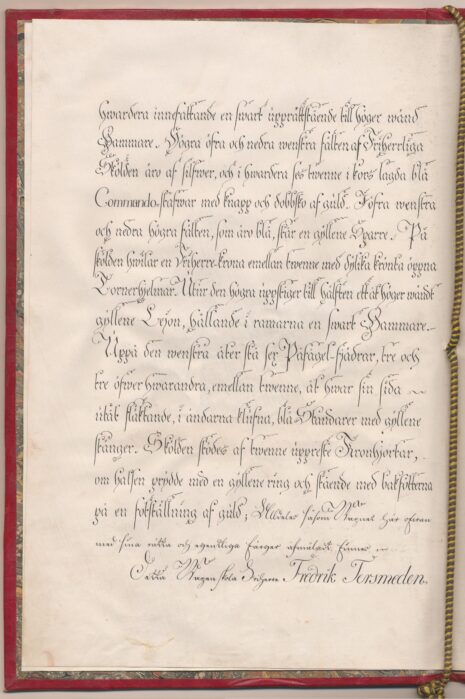 hwardera innefattande en swart upprättstående till höger wänd
Hammare. Högra öfra och nedra wenstra fälten af Friherrliga
Skölden äro af silfwer, och i hwardera ses twenne i kors lagda blå
Commando-stafwar med knapp och dobbsko af guld. I öfra wenstra
och nedra högra fälten, som äro blå, står en gyllene Sparre. På
skölden hwilar en Friherre-krona emellan twenne med dylika krönta öppna
Tornerhjelmar. Utur den högra uppstiger till hälften ett åt höger wändt
gyllene Lejon, hållande i ramarna en swart Hammare.
Uppå den wenstra åter stå sex Påfågel-fjädrar, tre och
tre öfwer hwarandra, emellan twenne, åt hwar sin sida
utåt fläktande, i ändarna klufna, blå Standarer med gyllene
stänger. Skölden stödes af twenne uppreste Kronhjortar,
om halsen prydde med en gyllene ring och stående med bakfötterna
på en fotställning af guld; Aldeles såsom Wapnet här ofwan
med sina rätta och egenteliga färger afmåladt finnes
Detta Wapen skola Friherre Fredrik Tersmeden.